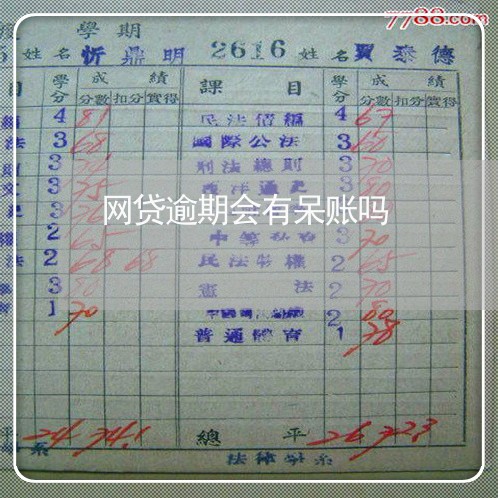 7788.com
學期
5 姓名 忻鼎明 2616 姓名 賈泰德
目 學分 成績 課目 學分 成績
分數 扣分 實得 分數 扣分 實得
4 81 民法債編 4 67
法 3 68 國際公法 3 60
3 刑法總則 3 70
3 75 西洋通史 3 80
網贷逾期会有呆账吗
權 2 65 3 70
法 2 68 68 民法物權 2 65
3 80 憲法 2 70
1 70 2 80
普通體育 1 78
平 24 74.1 總平 26 72.3
系 法律學系